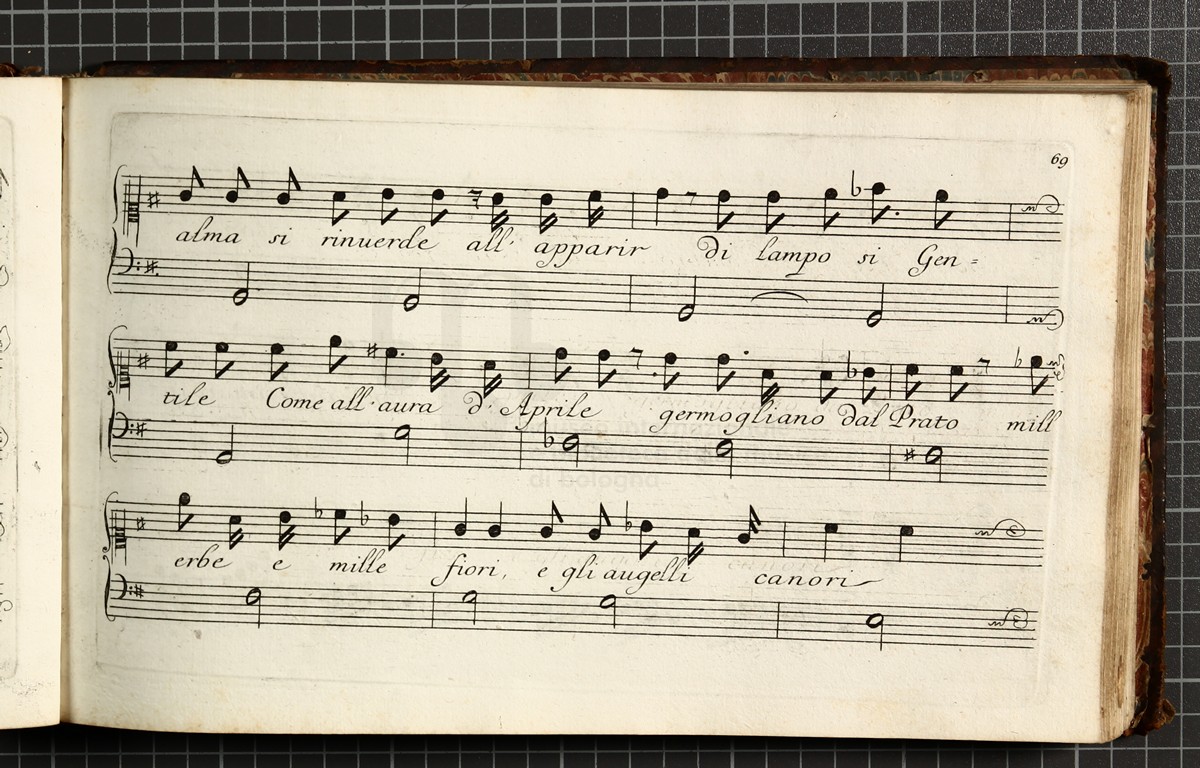 69
alma si rinuerde all' apparir di lampo si Gen=
tile Come all' aura d' Aprile germogliano dal Prato mill
erbe e mille fiori, e gli augelli canori
di bologna